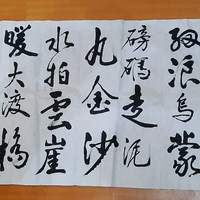 细浪烏蒙
磅礴走泥
丸金沙
水拍雲崖
暖大渡橋